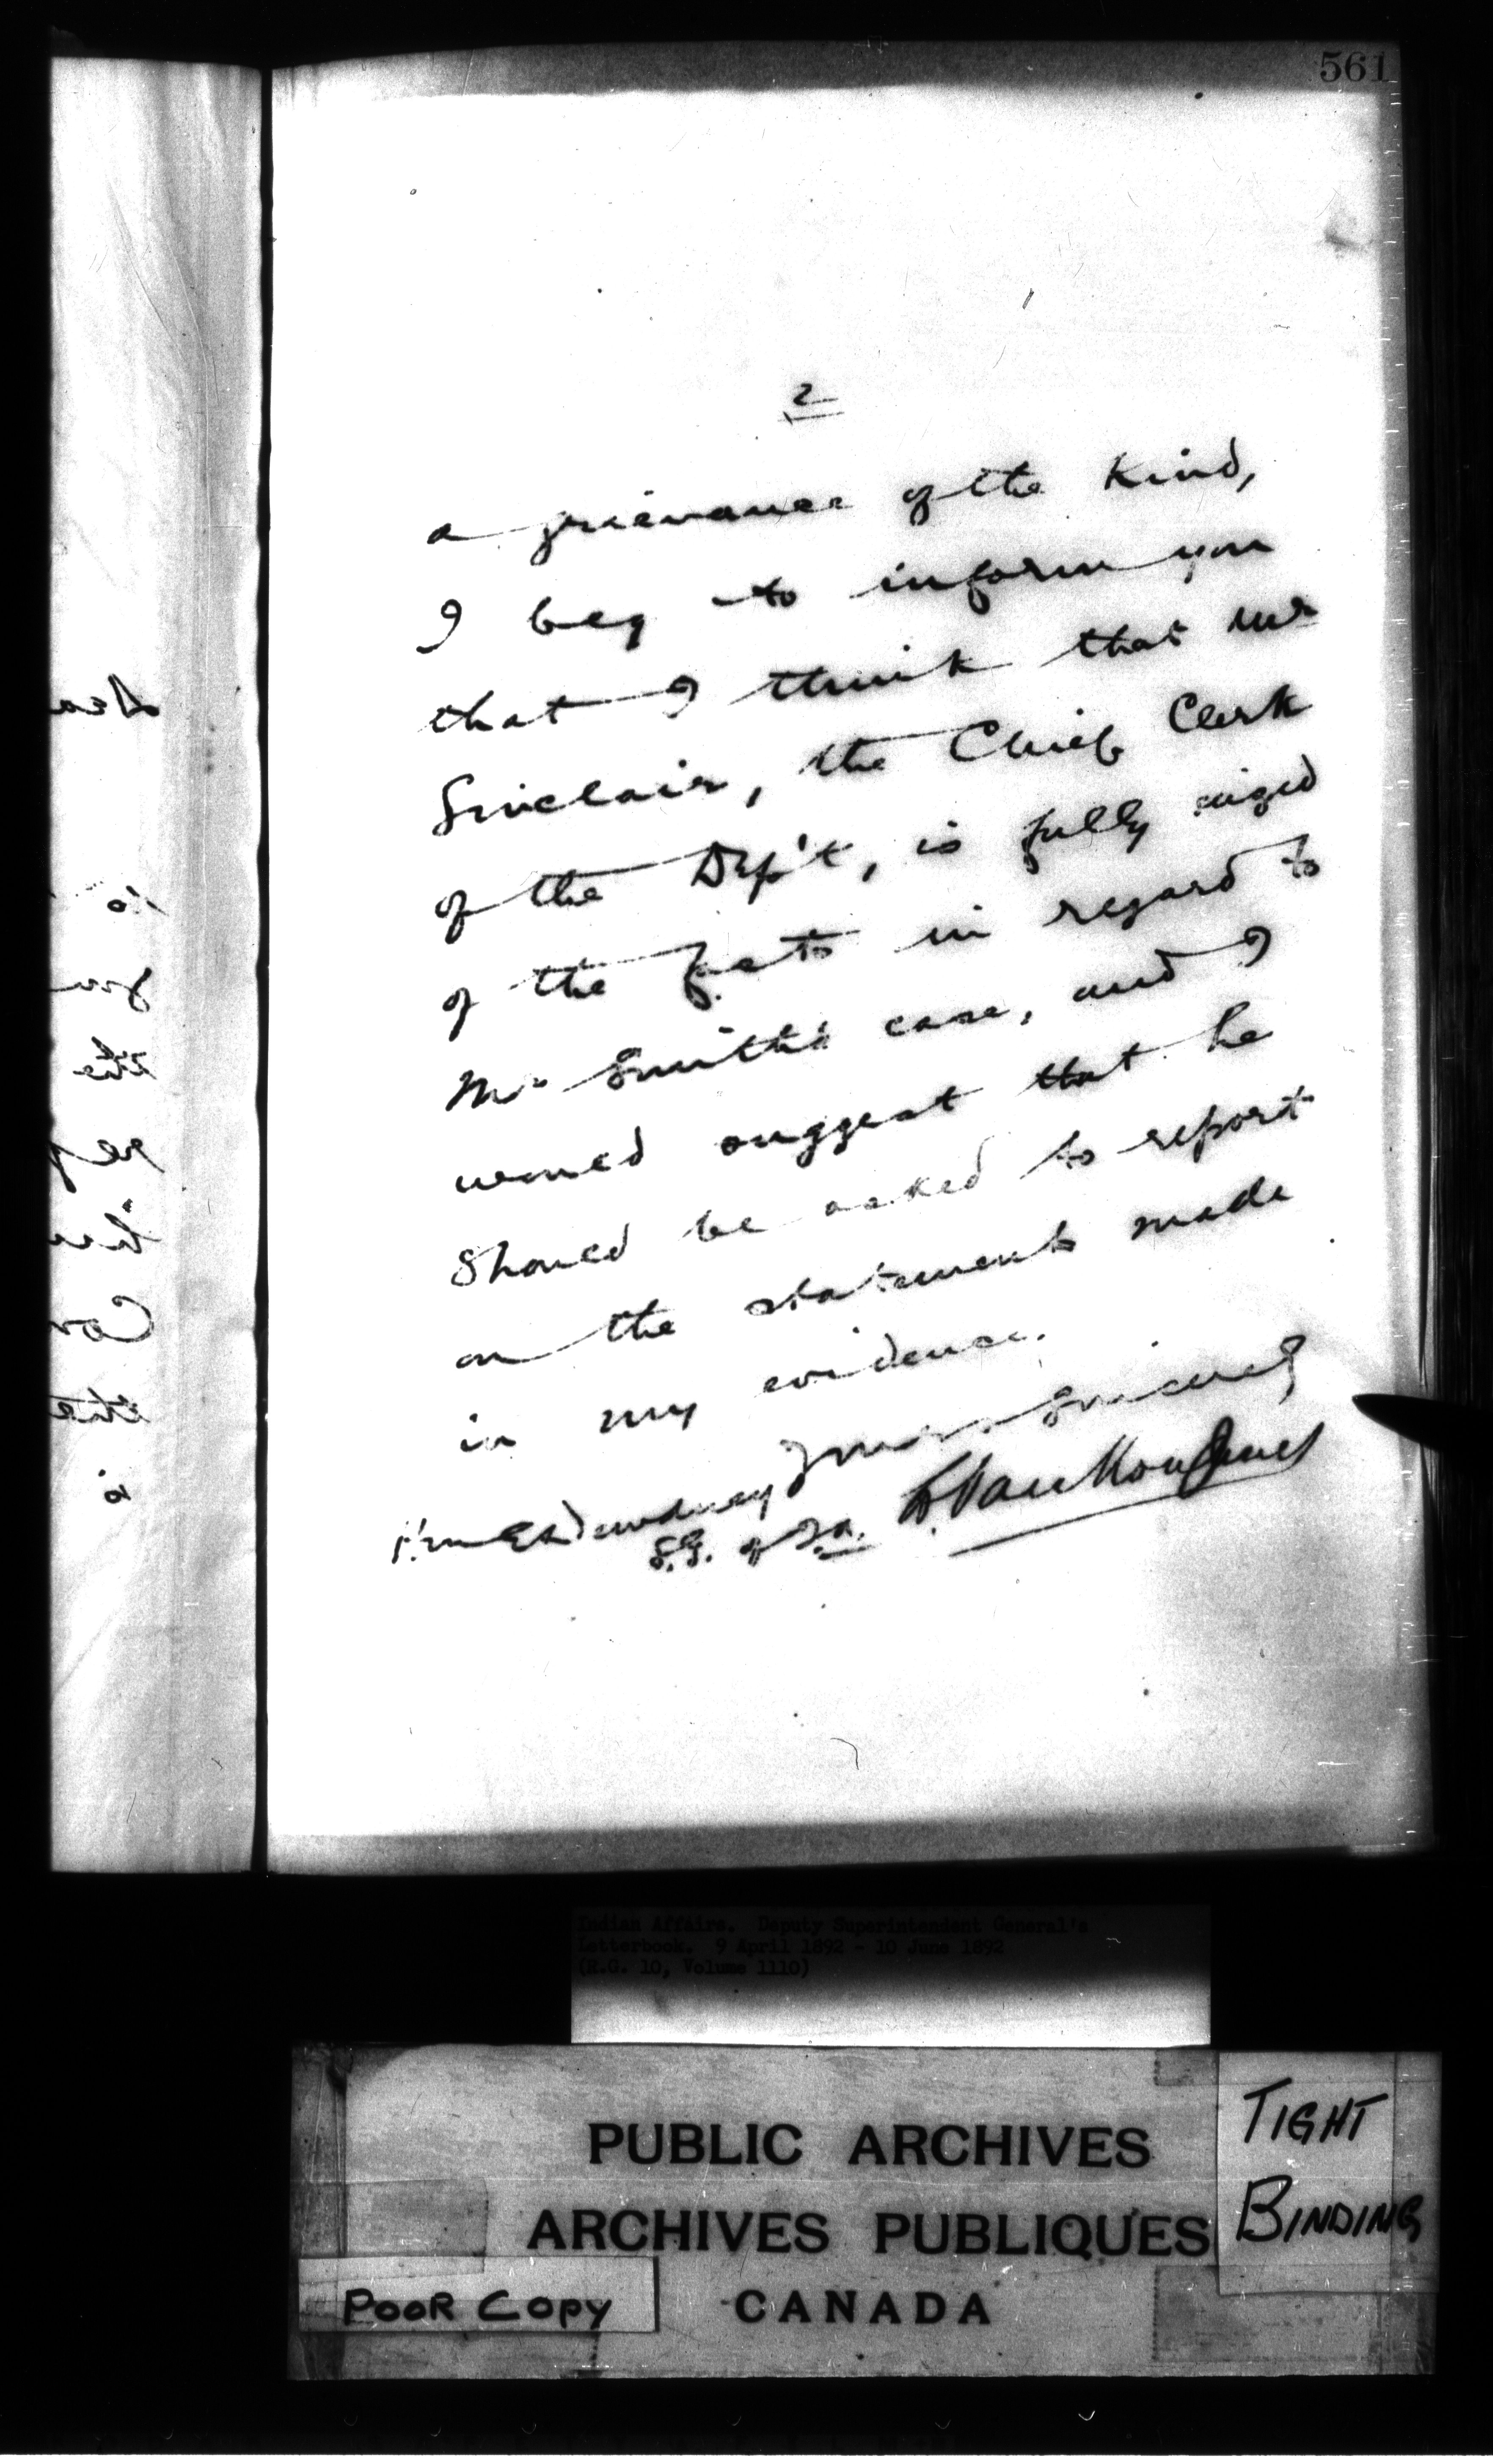 561
2
a grievance of the Kind,
I beg to inform you
that I think that Mr
Sinclair, the Chief Clerk
of the Dep't, is fully seized
of the facts in regard to
Mr Smith's case, and I
would suggest that he
should be asked to report
on the statements made
in my evidence.
Yours Sincerely
L. VanKoughnet
Hon E Dewdney
S.G. of I.a.
Indian Affairs. Deputy Superintendent General's
Letterbook. 9 April 1892 - 10 June 1892
(R.G. 10, Volume 1110)
PUBLIC ARCHIVES
ARCHIVES PUBLIQUES
CANADA
TIGHT
BINDING
POOR COPY